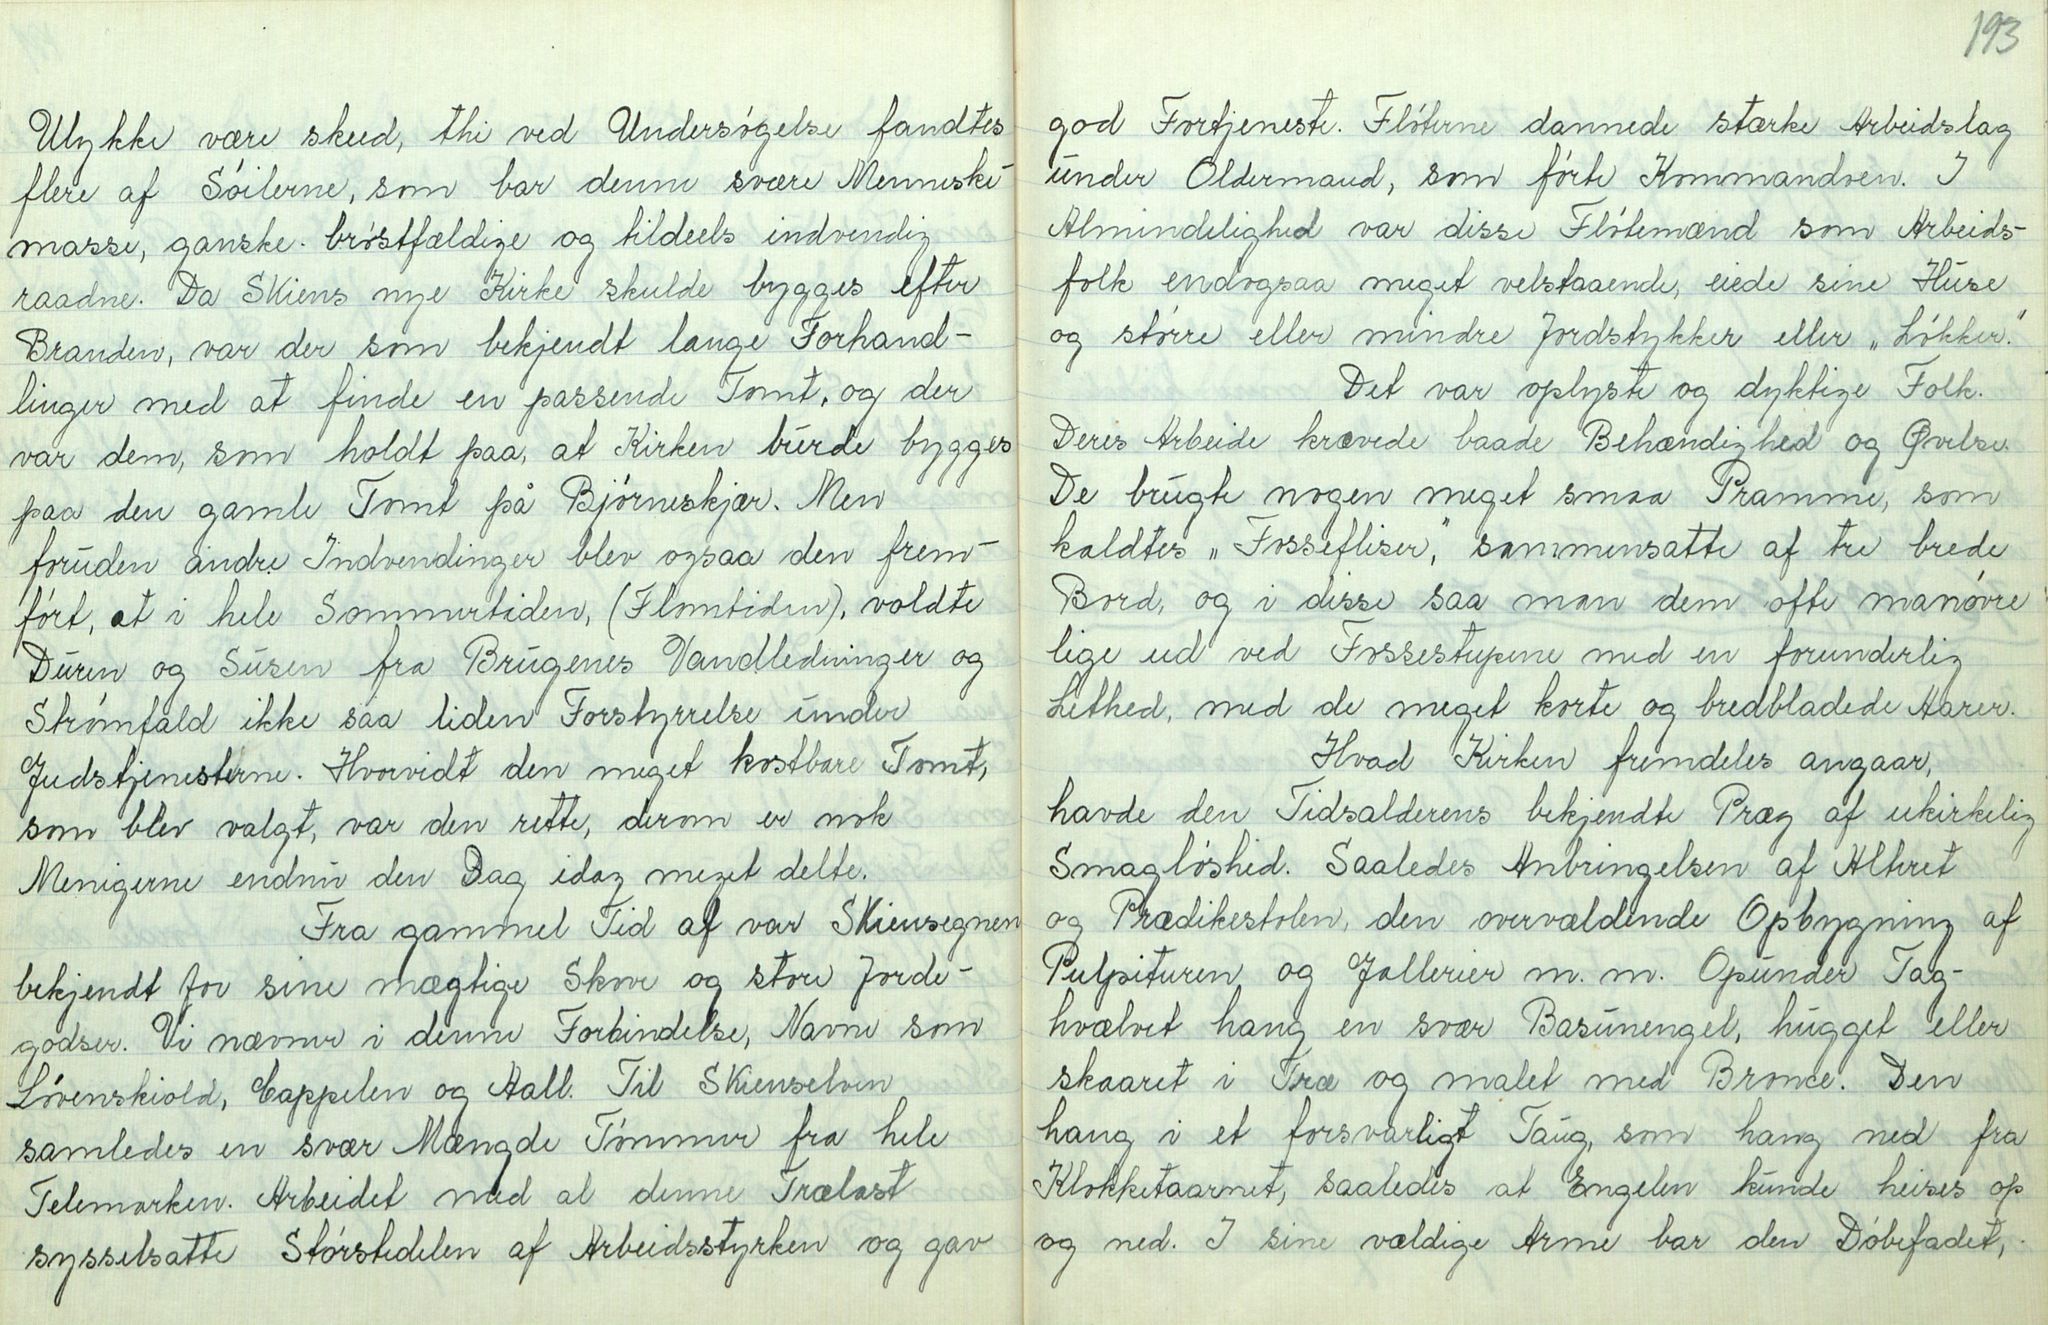 Ulykke være skeed, thi ved Undersógelse fandtes
flere af Sóilerne, som bar denne svære Menneske-
masse, ganske bróstfældige og tildeels indvendig
raadne. Da Skiens nye Kirke skulde bygges efter
Branden, var der som bekjendt lange Forhand-
linger med at finde en passende Tomt, og der
var dem, som holdt paa, at Kirken burde bygges
paa den gamle Tomt på Bjórneskjær. Men
foruden andre Indvendinger blev ogsaa den frem-
fórt, at i hele Sommertiden, (Flomtiden), voldte
Duren og Susen fra Brugenes Vandledninger og
Strómfald ikke saa liden Forstyrrelse under
Gudstjenesterne. Hvorvidt den meget kostbare Tomt,
som blev valgt, var den rette, derom er nok
Menigerne endnu den Dag idag meget delte.
Fra gammel Tid af var Skiensegnen
bekjendt for sine mægtige Skove og store Jorde-
godser. Vi nævner i denne Forbindelse, Navne som
Lóvenskiold, Cappelen og Aall. Til Skienselven
samledes en svær Mængde Tómmer fra hele
Telemarken. Arbeidet med al denne Trælast
sysselsatte Stórstedelen af Arbeidsstyrken og gav
193
god Fortjeneste. Flóterne dannede stærke Arbeidslag
under Oldermand, som fórte Kommandoen. I
Almindelighed var disse Flótemænd som Arbeids-
folk endogsaa meget velstaaende, eiede sine Huse
og stórre eller mindre Jordstykker eller „Lókker."
Det var oplyste og dyktige Folk.
Deres Arbeide krævede baade Behændighed og Øvelse.
De brugte nogen meget smaa Pramme, som
kaldtes „Fossefliser," sammensatte af tre brede
Bord, og i disse saa man dem ofte manóvre
lige ud ved Fossestupene med en forunderlig
Lethed, med de meget korte og bredbladede Aarer.
Hvad Kirken fremdeles angaar,
havde den Tidsalderens bekjendte Præg af ukirkelig
Smaglóshed. Saaledes Anbringelsen af Alteret
og Prædikestolen, den overvældende Opbygning af
Pulpituren og Gallerier m. m. Opunder Tag-
hvælvet hang en svær Basunengel, hugget eller
skaaret i Træ og malet med Bronce. Den
hang i et forsvarligt Taug, som hang ned fra
Klokketaarnet, saaledes at Engelen kunde heises op
og ned. I sine vældige Arme bar den Dóbefadet,